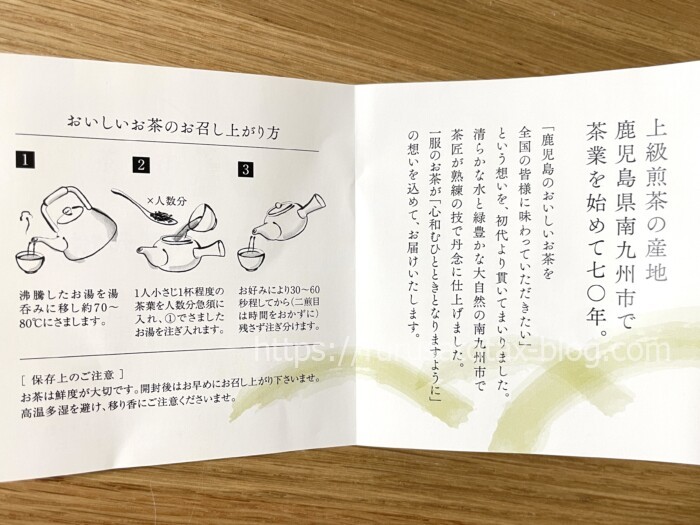 おいしいお茶のお召し上がり方
1
沸騰したお湯を湯
呑みに移し約70～
80℃にさまします。
2
×人数分
1人小さじ1杯程度の
茶葉を人数分急須に
入れ、①でさました
お湯を注ぎ入れます。
3
お好みにより30～60
秒程してから(二煎目
は時間をおかずに)
残さず注ぎ分けます。
[ 保存上のご注意 ]
お茶は鮮度が大切です。開封後はお早めにお召し上がり下さいませ。
高温多湿を避け、移り香にご注意くださいませ。
上級煎茶の産地
鹿児島県南九州市で
茶業を始めて七〇年。
「鹿児島のおいしいお茶を
全国の皆様に味わっていただきたい」
という想いを、初代より貫いてまいりました。
清らかな水と緑豊かな大自然の南九州市で
茶匠が熟練の技で丹念に仕上げました。
一服のお茶が「心和むひとときとなりますように」
の想いを込めて、お届けいたします。